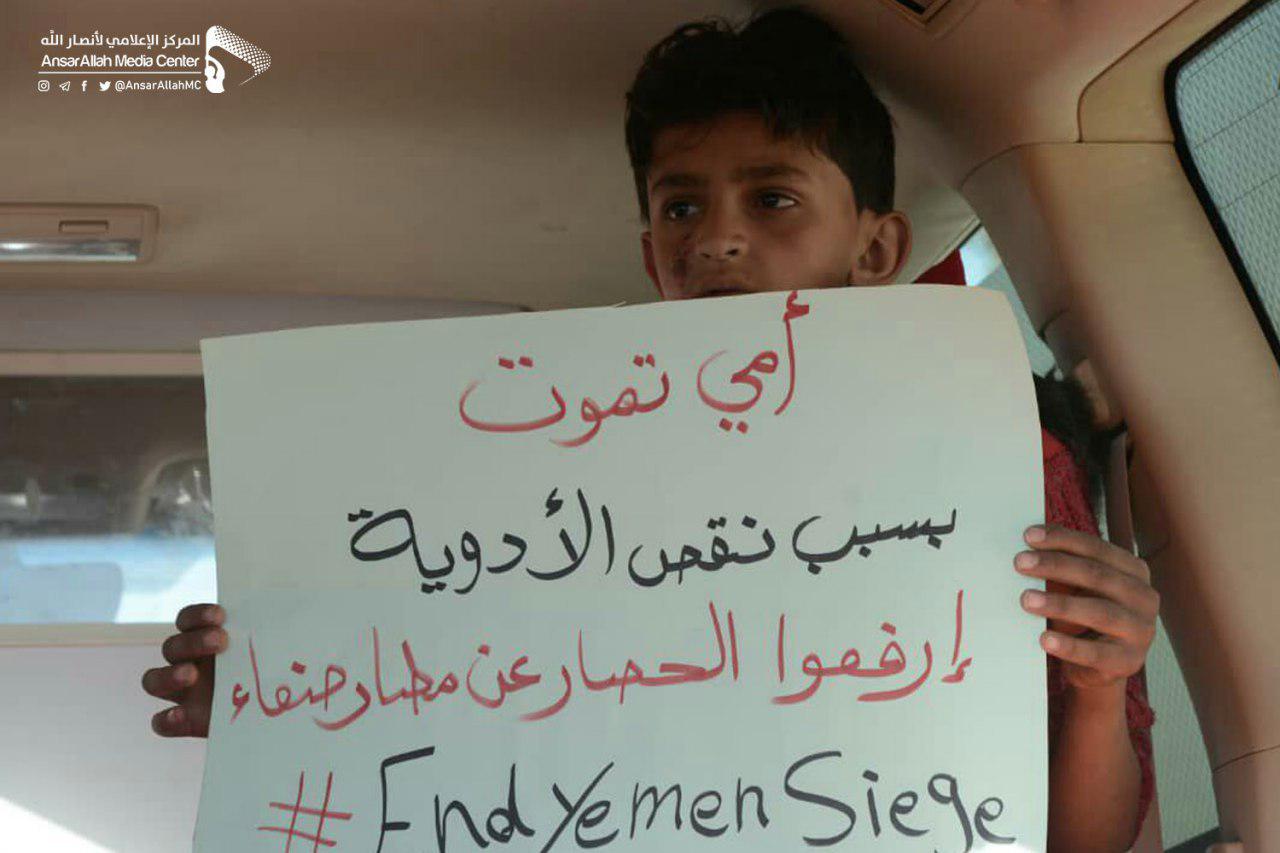 المركز الإعلامي لأنصار الله
AnsarAllah Media Center
@AnsarAllahMC
أمي تموت
بسبب نقص الأدوية
إرفعوا الحصار عن مطار صنعاء
#EndYemenSiege